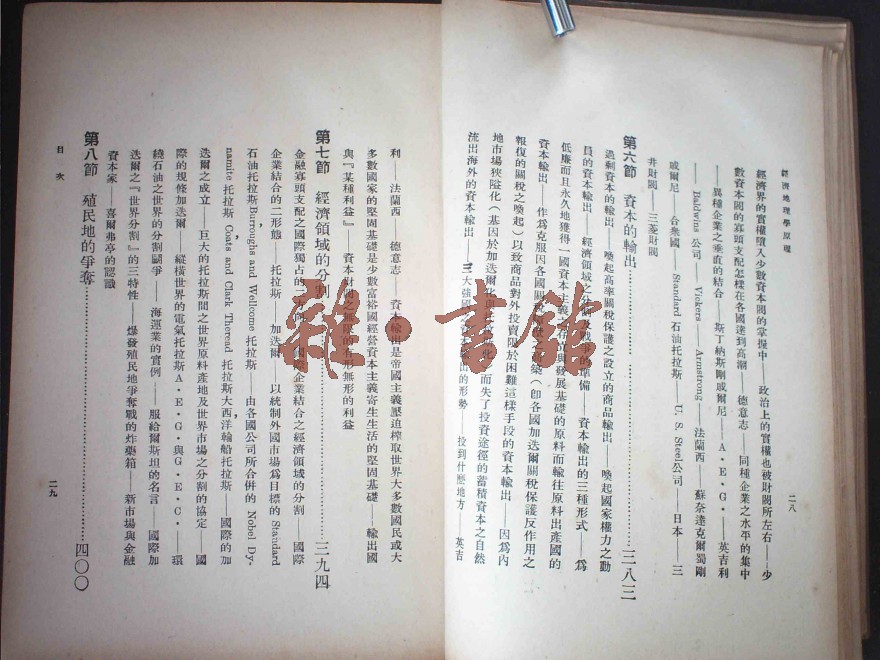 經濟地理學原理
二八
經濟界的實權墮入少數資本閥的掌握中——政治上的實權也被財閥所左右——少
數資本閥的寡頭支配怎樣在各國達到高潮——德意志——同種企業之水平的集中
——異種企業之垂直的結合——斯丁納斯剛威爾尼——A.E.G.——英吉利
——Baldwins 公司——Vickers——Armstrong——法蘭西——蘇奈達克爾蜀剛
威爾尼——合衆國——Standard 石油托拉斯——U. S. Steel公司——日本——三
井財閥——三菱財閥
第六節 資本的輸出……三八三
過剩資本的輸出——喚起高率關稅保護之設立的商品輸出——喚起國家權力之動
員的資本輸出——經濟領域之 及戰爭的準備——資本輸出的三種形式——爲
低廉而且永久地獲得一國資本主義之存立與發展基礎的原料而輸往原料出產國的
資本輸出——作爲克服因各國關稅 之 築（卽各國加迭爾關稅保護反作用之
報復的關稅之喚起）以致商品對外投賣限於困難這樣手段的資本輸出——因爲內
地市場狹隘化（基因於加迭爾化與 化）而失了投資途徑的蓄積資本之自然
流出海外的資本輸出——三大強國 輸出的形勢——投到什麼地方——英吉
利——法蘭西——德意志——資本輸出是帝國主義壓迫榨取世界大多數國民或大
多數國家的堅固基礎是少數富裕國經營資本主義寄生生活的堅固基礎——輸出國
與『某種利益』——資本財閥之無限的有形無形的利益
第七節 經濟領域的分割……三九四
金融寡頭支配之國際獨占的二方 ——國際企業結合之經濟領域的分割——國際
企業結合的二形態——托拉斯——加迭爾——以統制外國市場爲目標的 Standard
石油托拉斯Burroughs and Wellcome 托拉斯——由各國公司所合併的 Nobel Dy-
namite 托拉斯 Coats and Clark Theread 托拉斯大西洋輪船托拉斯——國際的加
迭爾之成立——巨大的托拉斯間之世界原料產地及世界市場之分割的協定——國
際的規條加迭爾——縱橫世界的電氣托拉斯A.E.G.與G.E.C.——環
繞石油之世界的分割鬭爭——海運業的實例——服給爾斯坦的名言——國際加
迭爾之『世界分割』的三特性——爆發殖民地爭奪戰的炸藥箱——新市場與金融
資本家——喜爾弗亭的認識
第八節 殖民地的爭奪……四〇〇
目次
二九